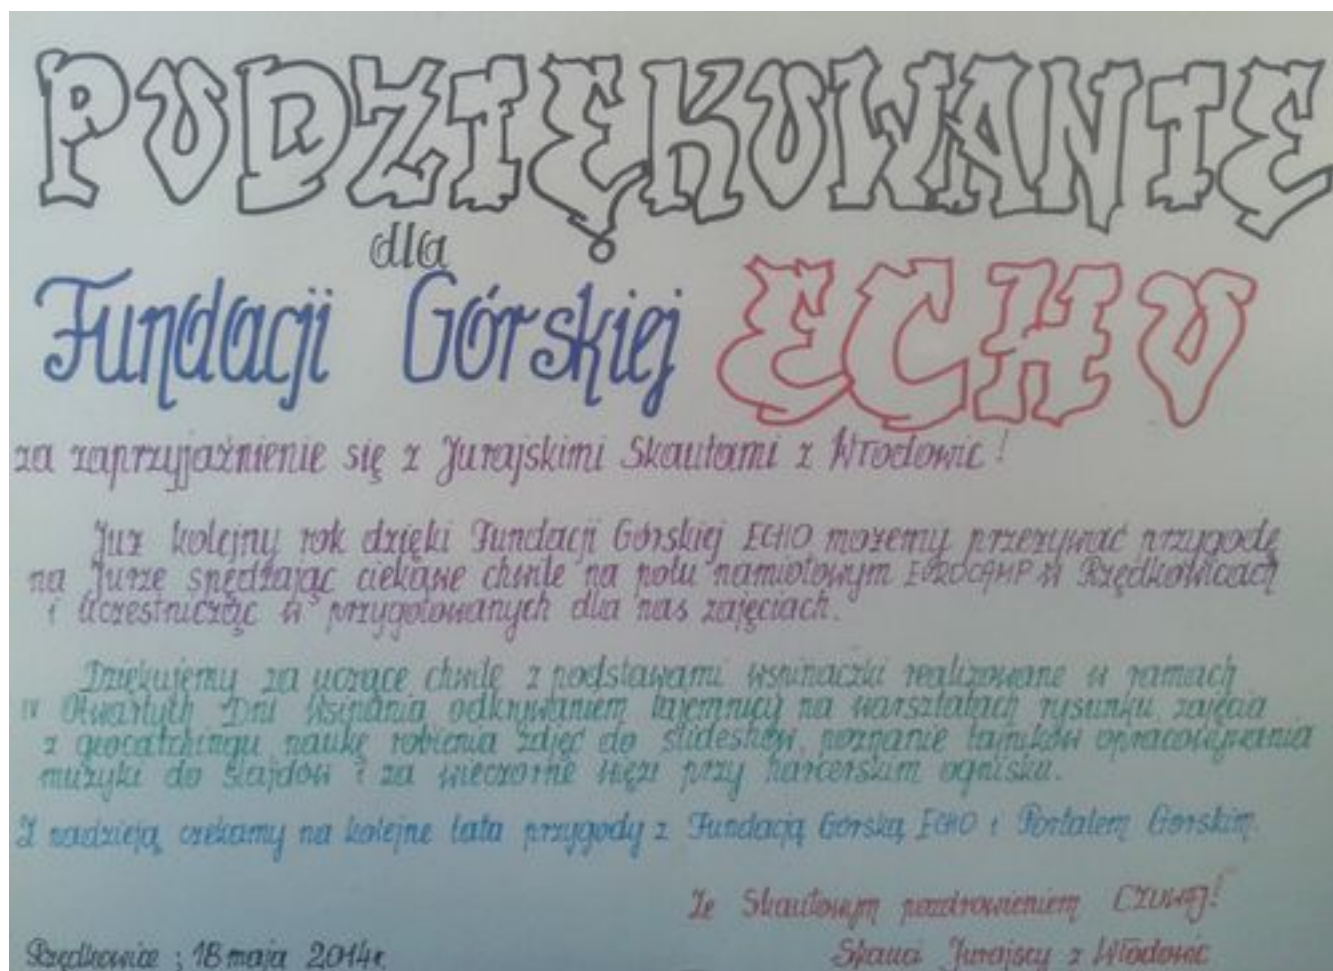 PODZIĘKOWANIE
dla
Fundacji Górskiej ECHO
za zaprzyjaźnienie się z Jurajskimi Skautami z Włodowic!
Już kolejny rok dzięki Fundacji Górskiej ECHO możemy przeżywać przygodę
na Jurze spędzając ciekawe chwile na polu namiotowym EUROCAMP w Rzędkowicach
i uczestnicząc w przygotowanych dla nas zajęciach.
Dziękujemy za uczące chwile z podstawami wspinaczki realizowane w ramach
IV Otwartych Dni Wspinania, odkrywaniem tajemnicy na warsztatach rysunku zajęcia
z geocatchingu naukę robienia zdjęć do slideshow, poznanie tajników opracowywania
muzyki do slajdów i za wieczorne więzi przy harcerskim ognisku.
Z nadzieją czekamy na kolejne lata przygody z Fundacją Górską ECHO i Portalem Górskim.
Ze Skautowym pozdrowieniem CZUWAJ!
Rzędkowice ; 18 maja 2014r. Skauci Jurajscy z Włodowic